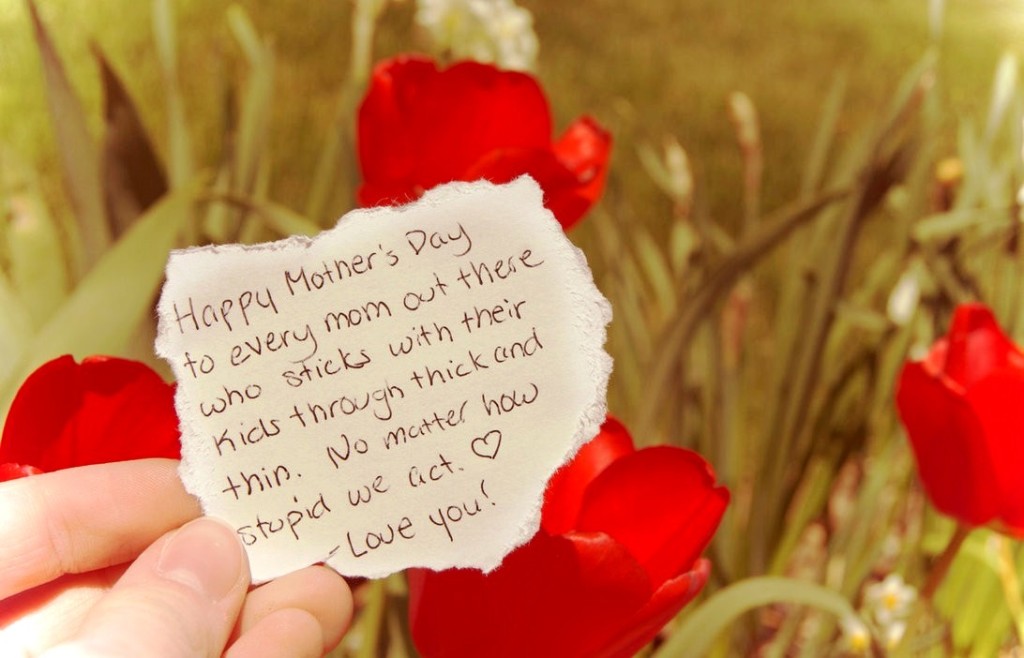 Happy Mother's Day
to every mom out there
who sticks with their
kids through thick and
thin. No matter how
stupid we act. ♡
-Love you!